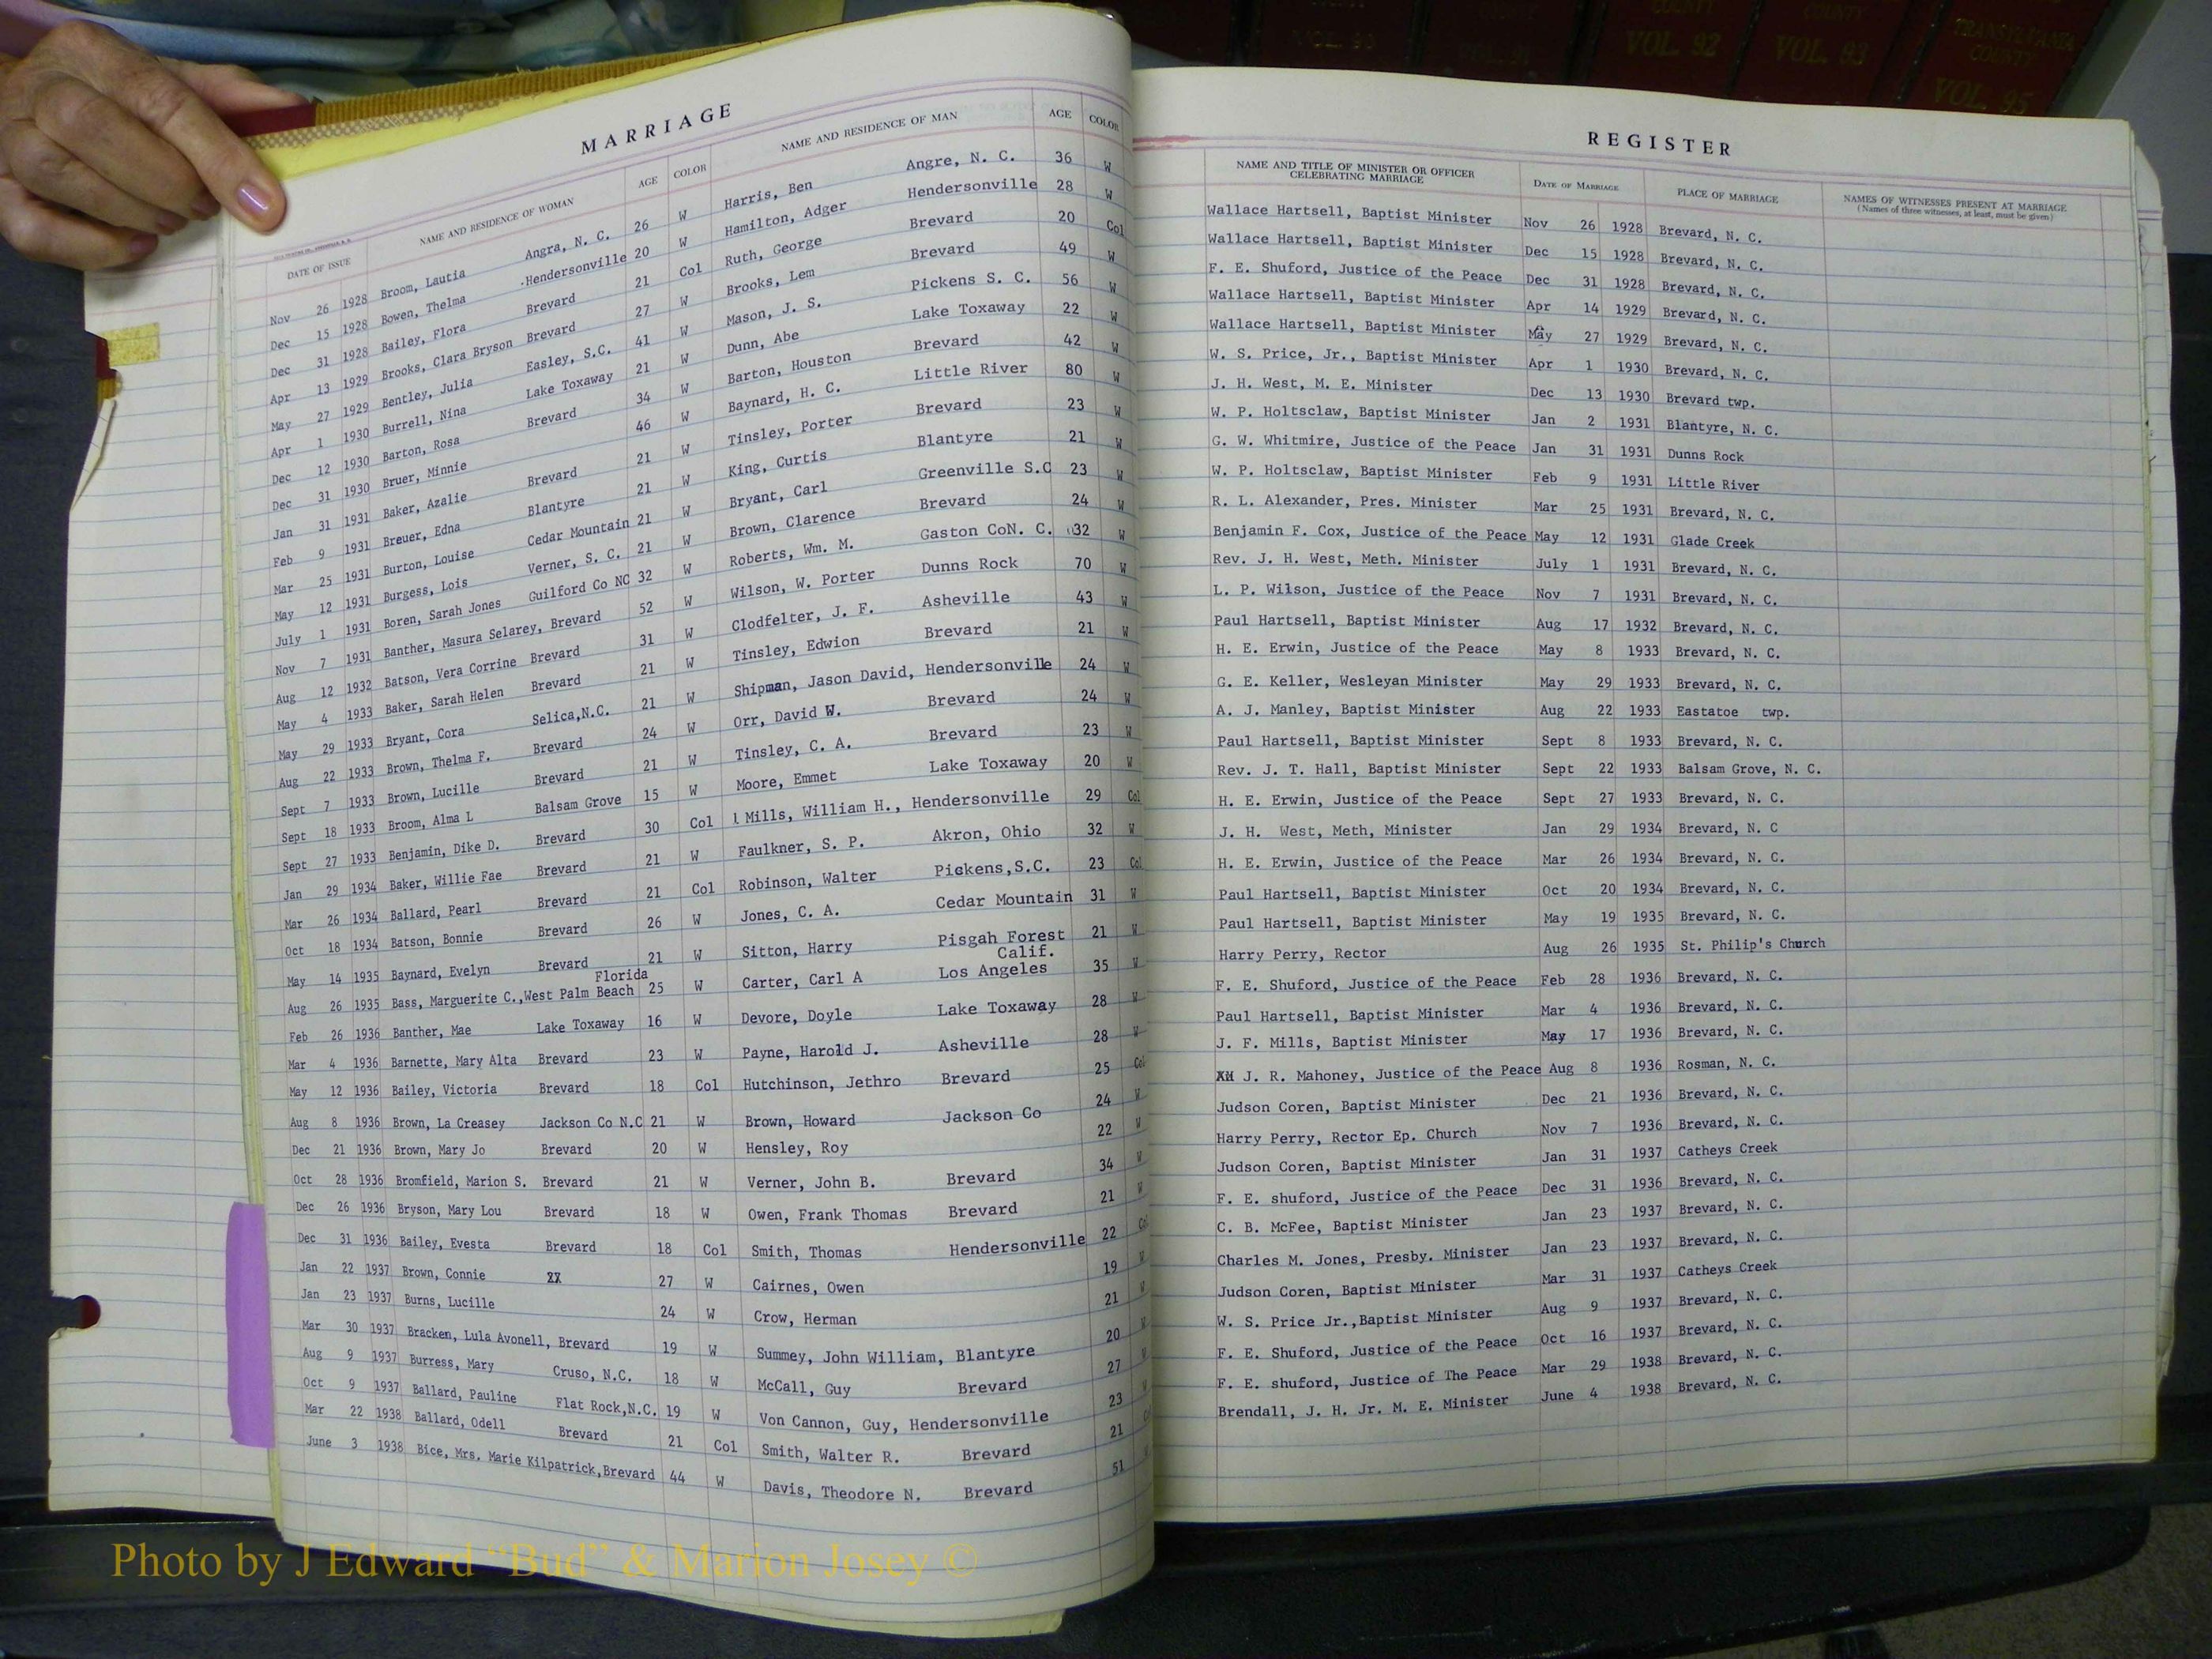 MARRIAGE
DATE OF ISSUE NAME AND RESIDENCE OF WOMAN AGE COLOR NAME AND RESIDENCE OF MAN AGE COLOR
Nov 26 1928 Broom, Lautia Angra, N. C. 26 W Harris, Ben Angre, N. C. 36 W
Dec 15 1928 Bowen, Thelma Hendersonville 20 W Hamilton, Adger Hendersonville 28 W
Dec 31 1928 Bailey, Flora Brevard 21 Col Ruth, George Brevard 20 Col
Apr 13 1929 Brooks, Clara Bryson Brevard 27 W Brooks, Lem Brevard 49 W
May 27 1929 Bentley, Julia Easley, S.C. 41 W Mason, J. S. Pickens S. C. 56 W
Apr 1 1930 Burrell, Nina Lake Toxaway 21 W Dunn, Abe Lake Toxaway 22 W
Dec 12 1930 Barton, Rosa Brevard 34 W Barton, Houston Brevard 42 W
Dec 31 1930 Bruer, Minnie 46 W Baynard, H. C. Little River 80 W
Jan 31 1931 Baker, Azalie Brevard 21 W Tinsley, Porter Brevard 23 W
Feb 9 1931 Breuer, Edna Blantyre 21 W King, Curtis Blantyre 21 W
Mar 25 1931 Burton, Louise Cedar Mountain 21 W Bryant, Carl Greenville S.C 23 W
May 12 1931 Burgess, Lois Verner, S. C. 21 W Brown, Clarence Brevard 24 W
July 1 1931 Boren, Sarah Jones Guilford Co NC 32 W Roberts, Wm. M. Gaston CoN. C. 32 W
Nov 7 1931 Banther, Masura Selarey, Brevard 52 W Wilson, W. Porter Dunns Rock 70 W
Aug 12 1932 Batson, Vera Corrine Brevard 31 W Clodfelter, J. F. Asheville 43 W
May 4 1933 Baker, Sarah Helen Brevard 21 W Tinsley, Edwion Brevard 21 W
May 29 1933 Bryant, Cora Selica,N.C. 21 W Shipman, Jason David, Hendersonville 24 W
Aug 22 1933 Brown, Thelma F. Brevard 24 W Orr, David W. Brevard 24 W
Sept 7 1933 Brown, Lucille Brevard 21 W Tinsley, C. A. Brevard 23 W
Sept 18 1933 Broom, Alma L Balsam Grove 15 W Moore, Emmet Lake Toxaway 20 W
Sept 27 1933 Benjamin, Dike D. Brevard 30 Col Mills, William H., Hendersonville 29 Col
Jan 29 1934 Baker, Willie Fae Brevard 21 W Faulkner, S. P. Akron, Ohio 32 W
Mar 26 1934 Ballard, Pearl Brevard 21 Col Robinson, Walter Pickens,S.C. 23 Col
Oct 18 1934 Batson, Bonnie Brevard 26 W Jones, C. A. Cedar Mountain 31 W
May 14 1935 Baynard, Evelyn Brevard 21 W Sitton, Harry Pisgah Forest 21 W
Florida Calif.
Aug 26 1935 Bass, Marguerite C.,West Palm Beach 25 W Carter, Carl A Los Angeles 35 W
Feb 26 1936 Banther, Mae Lake Toxaway 16 W Devore, Doyle Lake Toxaway 28 W
Mar 4 1936 Barnette, Mary Alta Brevard 23 W Payne, Harold J. Asheville 28 W
May 12 1936 Bailey, Victoria Brevard 18 Col Hutchinson, Jethro Brevard 25 Col
Aug 8 1936 Brown, La Creasey Jackson Co N.C 21 W Brown, Howard Jackson Co 24 W
Dec 21 1936 Brown, Mary Jo Brevard 20 W Hensley, Roy 22 W
Oct 28 1936 Bromfield, Marion S. Brevard 21 W Verner, John B. Brevard 34 W
Dec 26 1936 Bryson, Mary Lou Brevard 18 W Owen, Frank Thomas Brevard 21 W
Dec 31 1936 Bailey, Evesta Brevard 18 Col Smith, Thomas Hendersonville 22 Co
Jan 22 1937 Brown, Connie 27 W Cairnes, Owen 19 W
Jan 23 1937 Burns, Lucille 24 W Crow, Herman 21 W
Mar 30 1937 Bracken, Lula Avonell, Brevard 19 W Summey, John William, Blantyre 20
Aug 9 1937 Burress, Mary Cruso, N.C. 18 W McCall, Guy Brevard 27
Oct 9 1937 Ballard, Pauline Flat Rock,N.C. 19 W Von Cannon, Guy, Hendersonville 23
Mar 22 1938 Ballard, Odell Brevard 21 Col Smith, Walter R. Brevard 21
June 3 1938 Bice, Mrs. Marie Kilpatrick,Brevard 44 W Davis, Theodore N. Brevard 51
REGISTER
NAME AND TITLE OF MINISTER OR OFFICER CELEBRATING MARRIAGE DATE OF MARRIAGE PLACE OF MARRIAGE NAMES OF WITNESSES PRESENT AT MARRIAGE
(Names of three witnesses, at least, must be given)
Wallace Hartsell, Baptist Minister Nov 26 1928 Brevard, N. C.
Wallace Hartsell, Baptist Minister Dec 15 1928 Brevard, N. C.
F. E. Shuford, Justice of the Peace Dec 31 1928 Brevard, N. C.
Wallace Hartsell, Baptist Minister Apr 14 1929 Brevard, N. C.
Wallace Hartsell, Baptist Minister May 27 1929 Brevard, N. C.
W. S. Price, Jr., Baptist Minister Apr 1 1930 Brevard, N. C.
J. H. West, M. E. Minister Dec 13 1930 Brevard twp.
W. P. Holtsclaw, Baptist Minister Jan 2 1931 Blantyre, N. C.
G. W. Whitmire, Justice of the Peace Jan 31 1931 Dunns Rock
W. P. Holtsclaw, Baptist Minister Feb 9 1931 Little River
R. L. Alexander, Pres. Minister Mar 25 1931 Brevard, N. C.
Benjamin F. Cox, Justice of the Peace May 12 1931 Glade Creek
Rev. J. H. West, Meth. Minister July 1 1931 Brevard, N. C.
L. P. Wilson, Justice of the Peace Nov 7 1931 Brevard, N. C.
Paul Hartsell, Baptist Minister Aug 17 1932 Brevard, N. C.
H. E. Erwin, Justice of the Peace May 8 1933 Brevard, N. C.
G. E. Keller, Wesleyan Minister May 29 1933 Brevard, N. C.
A. J. Manley, Baptist Minister Aug 22 1933 Eastatoe twp.
Paul Hartsell, Baptist Minister Sept 8 1933 Brevard, N. C.
Rev. J. T. Hall, Baptist Minister Sept 22 1933 Balsam Grove, N. C.
H. E. Erwin, Justice of the Peace Sept 27 1933 Brevard, N. C.
J. H. West, Meth, Minister Jan 29 1934 Brevard, N. C
H. E. Erwin, Justice of the Peace Mar 26 1934 Brevard, N. C.
Paul Hartsell, Baptist Minister Oct 20 1934 Brevard, N. C.
Paul Hartsell, Baptist Minister May 19 1935 Brevard, N. C.
Harry Perry, Rector Aug 26 1935 St. Philip's Church
F. E. Shuford, Justice of the Peace Feb 28 1936 Brevard, N. C.
Paul Hartsell, Baptist Minister Mar 4 1936 Brevard, N. C.
J. F. Mills, Baptist Minister May 17 1936 Brevard, N. C.
J. R. Mahoney, Justice of the Peace Aug 8 1936 Rosman, N. C.
Judson Coren, Baptist Minister Dec 21 1936 Brevard, N. C.
Harry Perry, Rector Ep. Church Nov 7 1936 Brevard, N. C.
Judson Coren, Baptist Minister Jan 31 1937 Catheys Creek
F. E. shuford, Justice of the Peace Dec 31 1936 Brevard, N. C.
C. B. McFee, Baptist Minister Jan 23 1937 Brevard, N. C.
Charles M. Jones, Presby. Minister Jan 23 1937 Brevard, N. C.
Judson Coren, Baptist Minister Mar 31 1937 Catheys Creek
W. S. Price Jr.,Baptist Minister Aug 9 1937 Brevard, N. C.
F. E. Shuford, Justice of the Peace Oct 16 1937 Brevard, N. C.
F. E. shuford, Justice of The Peace Mar 29 1938 Brevard, N. C.
Brendall, J. H. Jr. M. E. Minister June 4 1938 Brevard, N. C.
COUNTY
VOL. 92
COUNTY
VOL. 93
TRANSYLVANIA
COUNTY
VOL. 95
Photo by J Edward “Bud” & Marion Josey ©